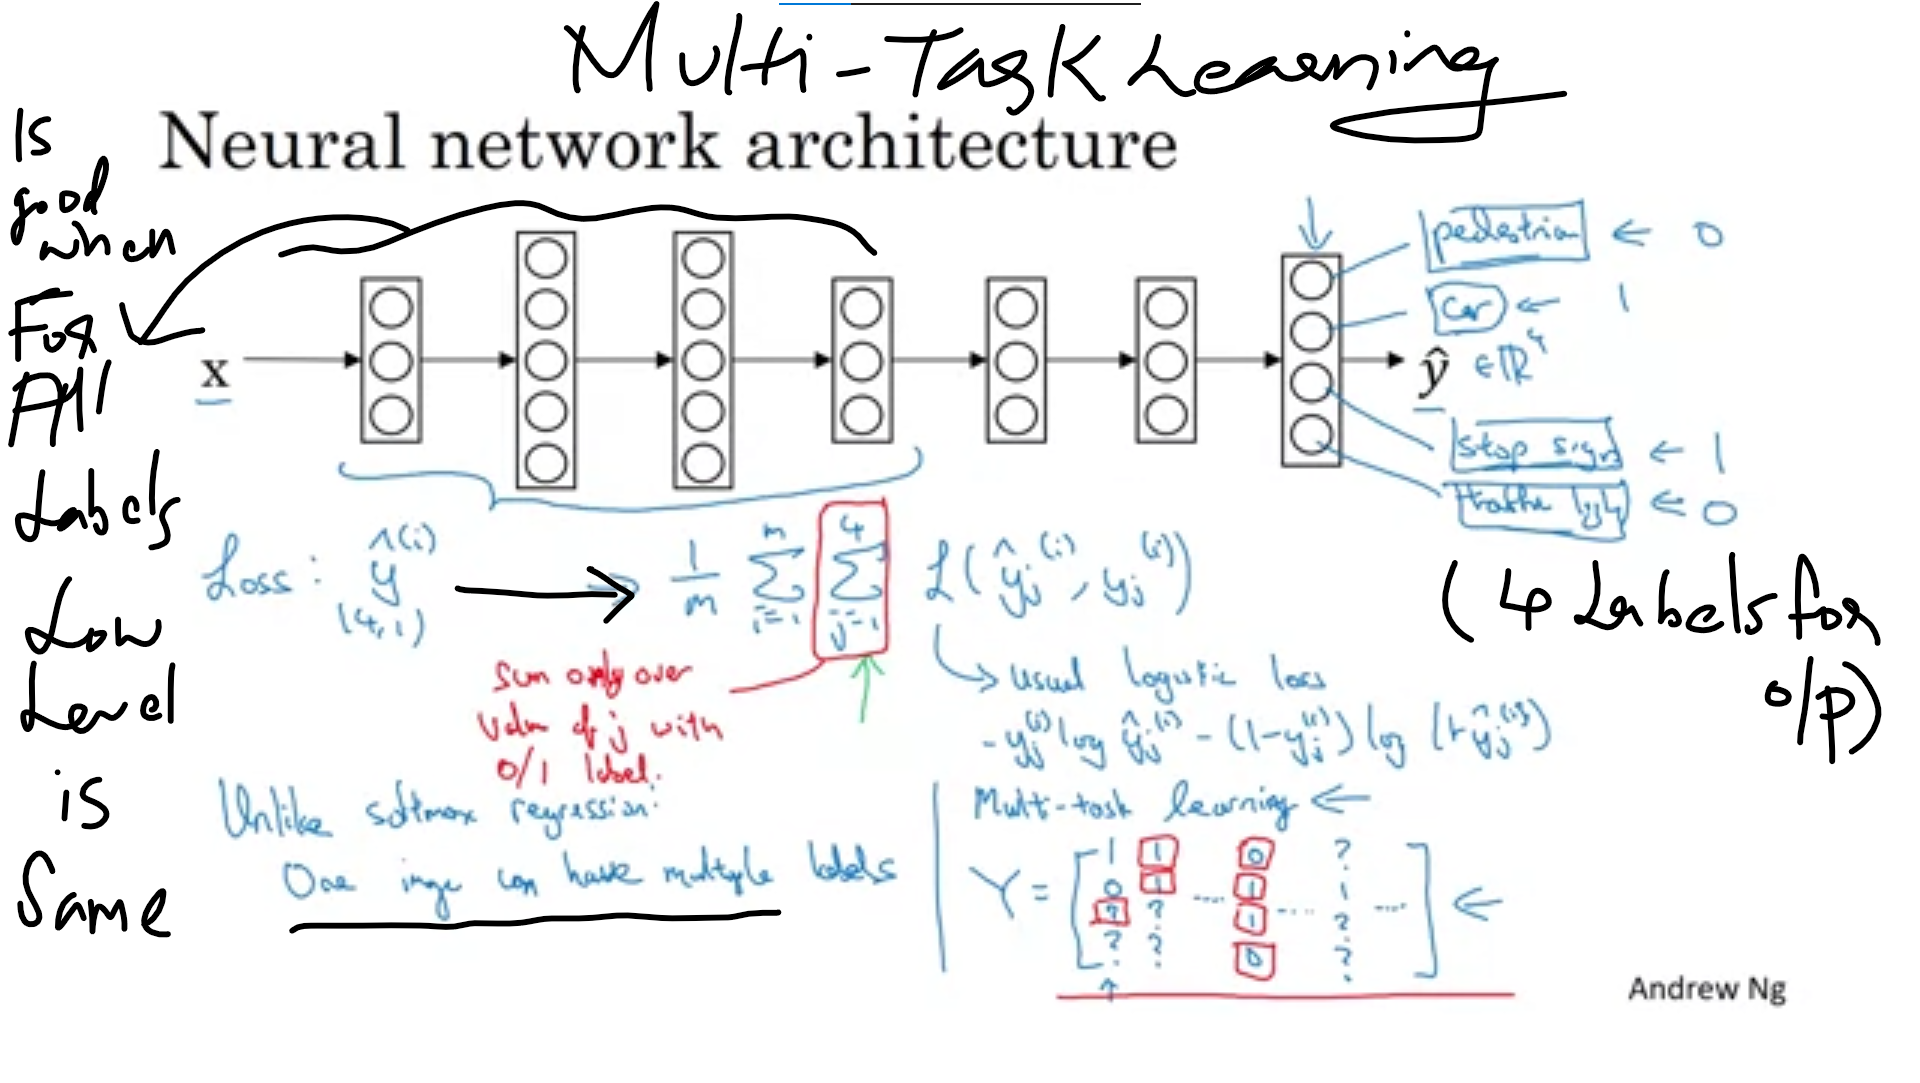 Multi-Task Learning
Neural network architecture
Is
good
when
For
All
Labels
Low
Level
is
Same
x
pedestrian ← 0
car ← 1
ŷ ∈ ℝ⁴
stop sign ← 1
traffic light ← 0
(4 Labels for
o/p)
Loss: ŷ^(i) → 1/m Σ_{i=1}^{m} Σ_{j=1}^{4} L(ŷ_j^(i), y_j^(i))
(4,1)
Sum only over
value of j with
0/1 label.
→ usual logistic loss
- y_j^(i) log ŷ_j^(i) - (1-y_j^(i)) log (1-ŷ_j^(i))
Unlike softmax regression:
One image can have multiple labels
Multi-task learning ←
Y = [ 1 1 0 ?
0 1 .... 1 1 .... ] ←
? ? 1 .... ?
? ? 0 ?
Andrew Ng